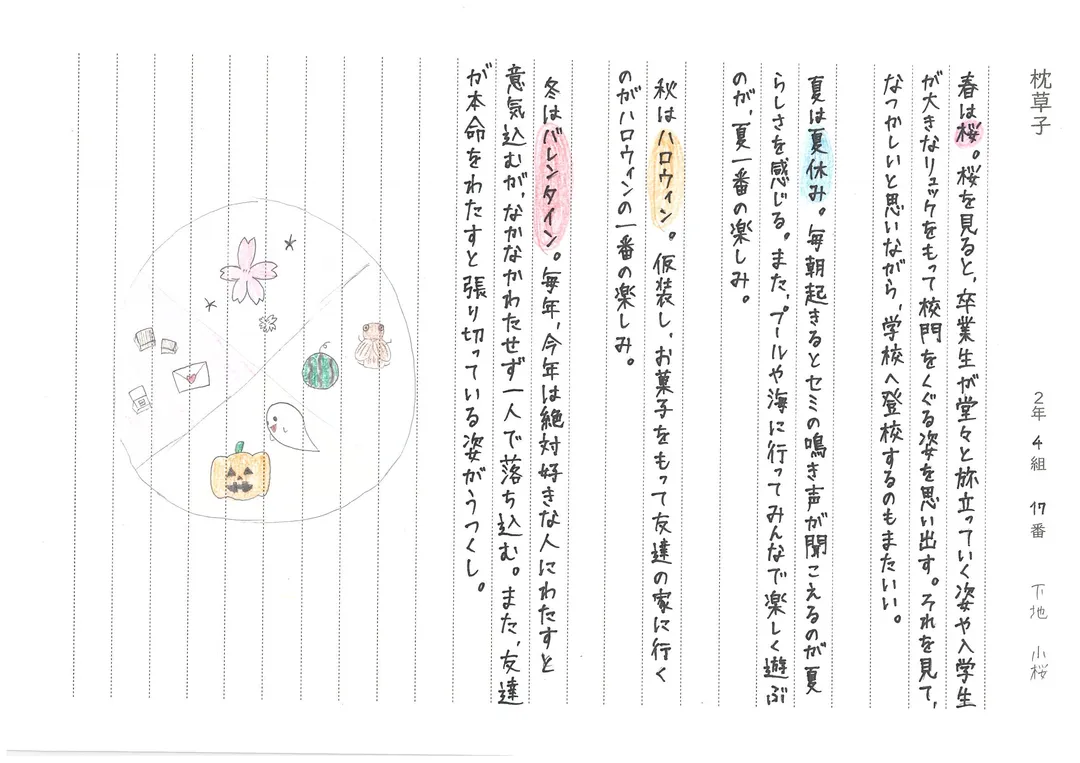 枕草子
2年 4組 17番 下地 小桜
春は桜。桜を見ると、卒業生が堂々と旅立っていく姿や入学生
が大きなリュックをもって校門をくぐる姿を思い出す。それを見て、
なつかしいと思いながら、学校へ登校するのもまたいい。
夏は夏休み。毎朝起きるとセミの鳴き声が聞こえるのが夏
らしさを感じる。また、プールや海に行ってみんなで楽しく遊ぶ
のが、夏一番の楽しみ。
秋はハロウィン。仮装し、お菓子をもって友達の家に行く
のがハロウィンの一番の楽しみ。
冬はバレンタイン。毎年、今年は絶対好きな人にわたすと
意気込むが、なかなかわたせず一人で落ち込む。また、友達
が本命をわたすと張り切っている姿がうつくし。